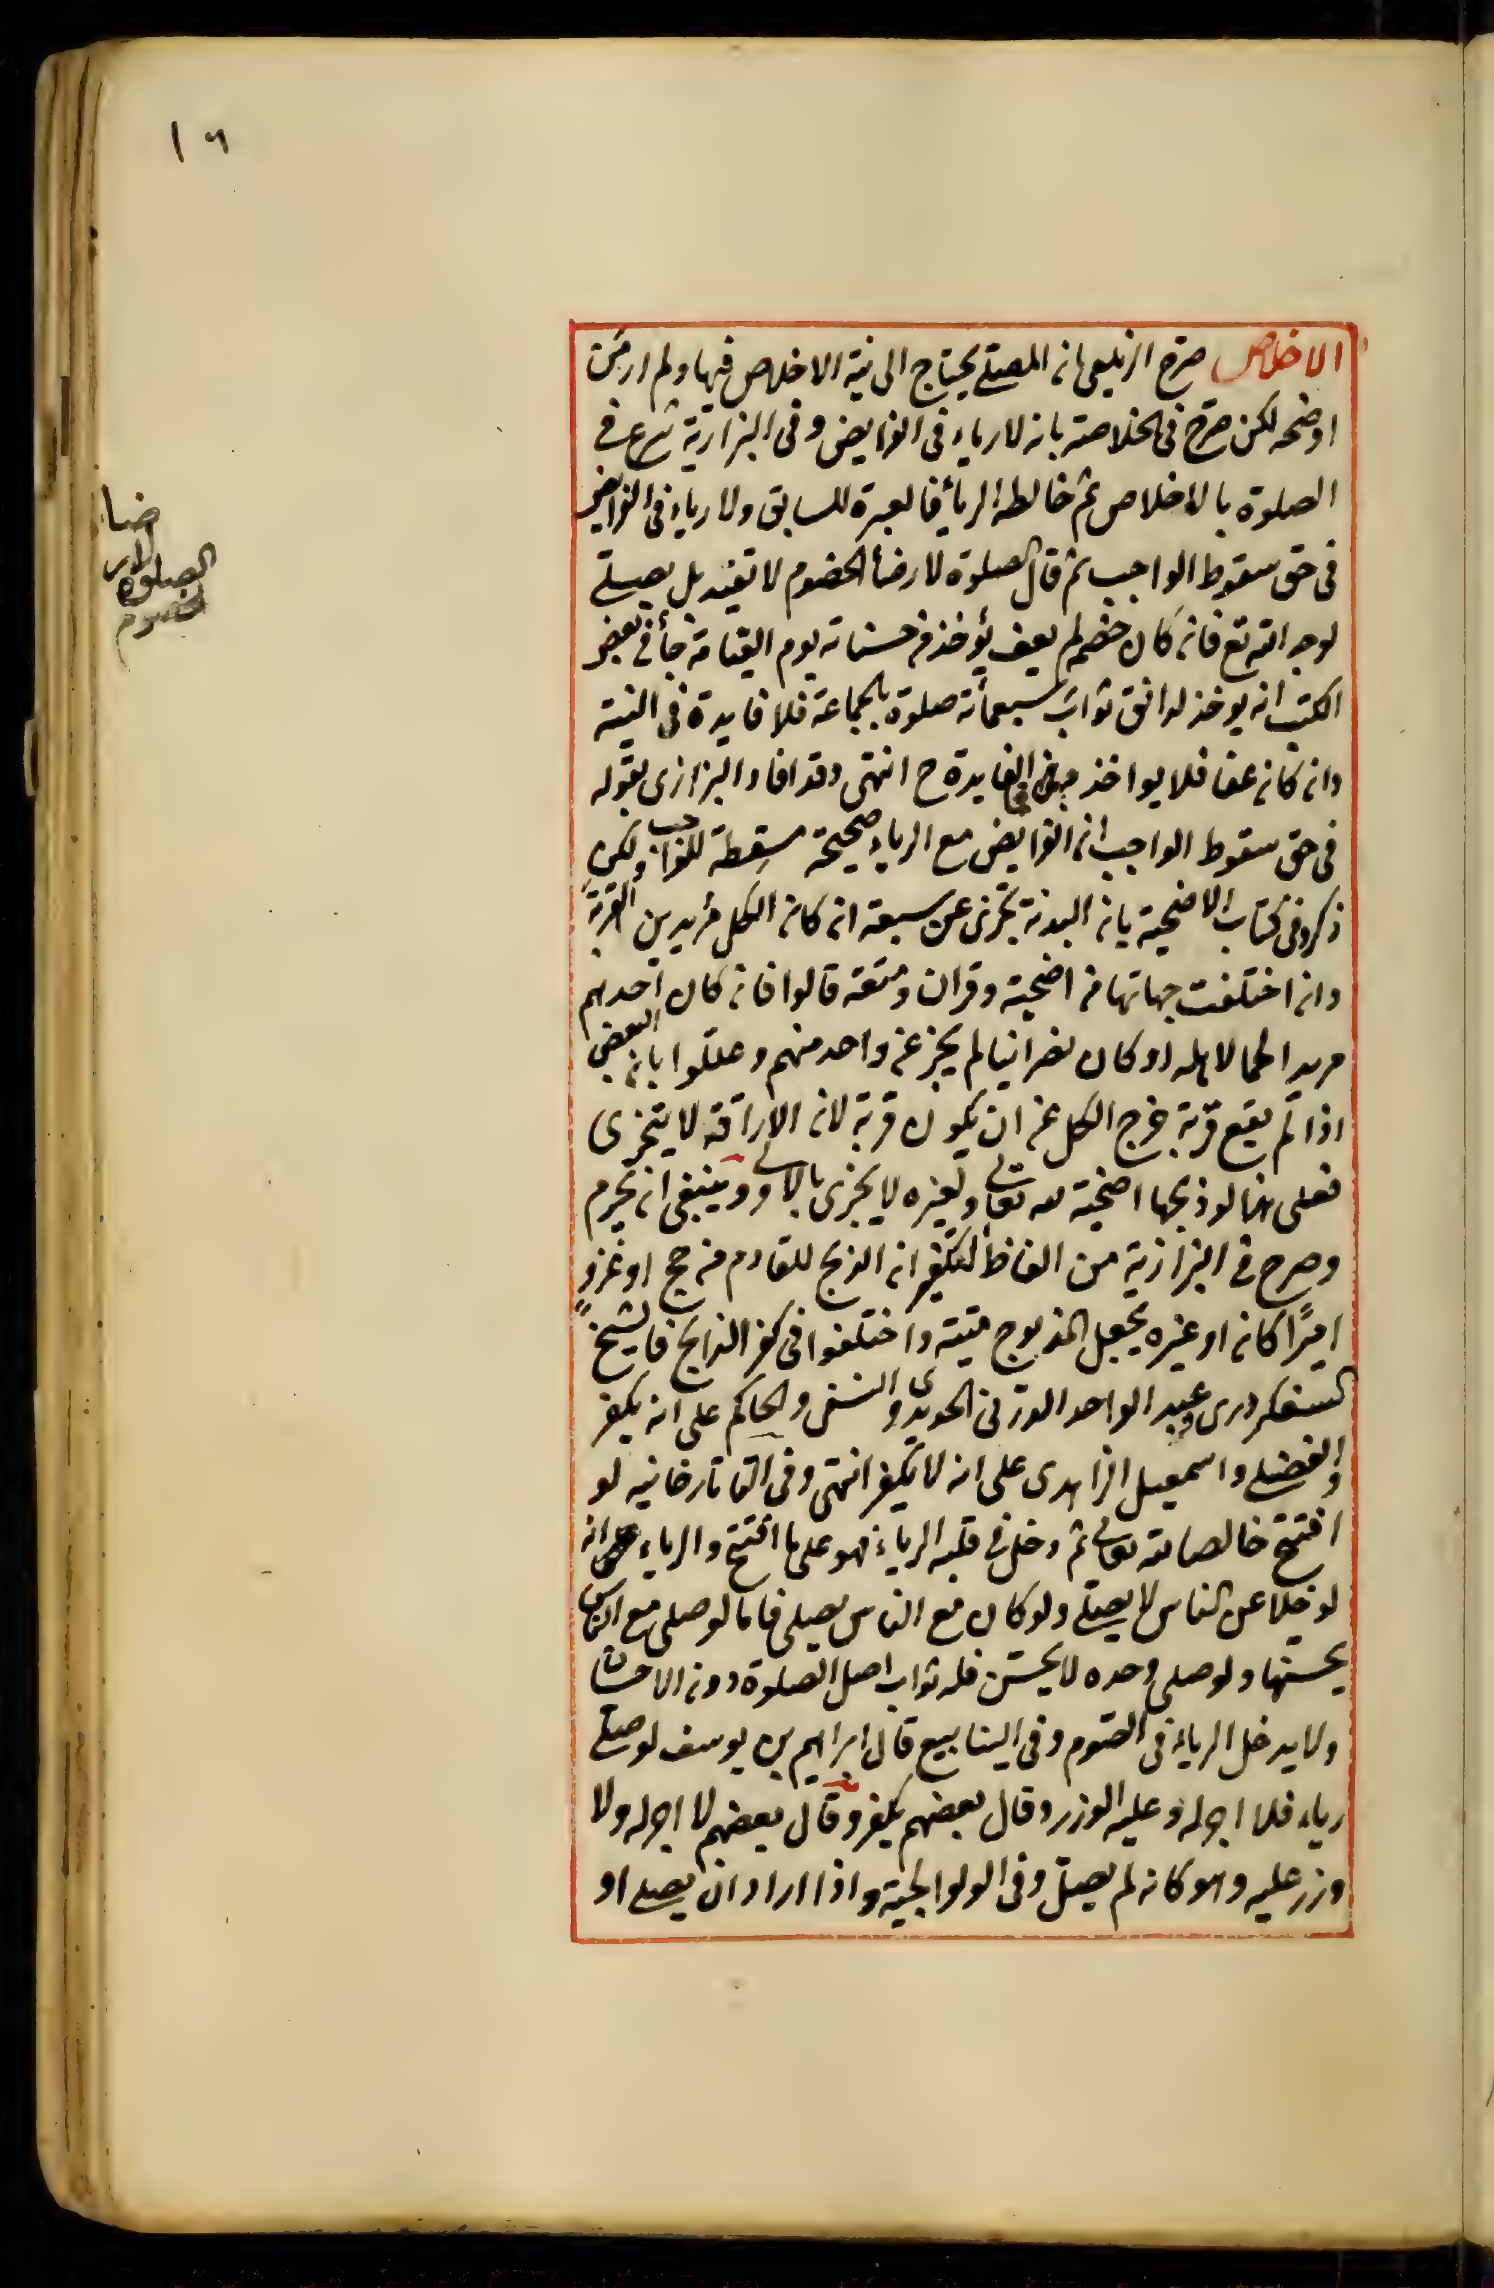 ١٦
الاخلاص صرح الزيلعي ان المصلي يحتاج الى نية الاخلاص فيها ولم ار من
اوضحه لكن صرح في الخلاصة بانه لا رياء في الفرايض وفي البزازية شرع في
الصلوة بالاخلاص ثم خالطه الرياء فالعبرة للسابق ولا رياء في الفرايض
في حق سقوط الواجب ثم قال الصلوة لارضاء الخصوم لا تفيد بل يصلي
لوجه الله تع فان كان خصم لم يعف يؤخذ من حسناته يوم القيامة جاء في بعض
الكتب انه يوخذ لدانق ثواب سبعمائة صلوة بالجماعة فلا فايدة في النية
وان كان عفا فلا يواخذ به فما الفايدة ح انتهى وقد افاد البزازي بقوله
في حق سقوط الواجب ان الفرايض مع الرياء صحيحة مسقطة للواجب ولكن
ذكر في كتاب الاضحية بان البدنة تجزى عن سبعة ان كان الكل مريدين القربة
وان اختلفت جهاتها من اضحية وقران ومتعة قالوا فان كان احدهم
مريد الحما لاهله او كان نصرانيا لم يجز عن واحد منهم وعللوا بان البعض
اذا لم يقع قربة خرج الكل عن ان يكون قربة لان الاراقة لا يتجزى
فعلى هذا لو ذبحها اضحية لله تعالى ولغيره لا يجزى بالاولى وينبغي ان يحرم
وصرح في البزازية من الفاظ التكفير ان الذبح للقادم من حج او غزو
اميرًا كان او غيره يجعل المذبوح ميتة واختلفوا في كفر الذابح فالشيخ
السفكردرى وعبد الواحد الدرقي الحديدى والنسفى والحاكم على انه يكفر
والفضلي واسمعيل الزاهدى على انه لا يكفر انتهى وفي التاتارخانيه لو
افتتح خالصا لله تعالى ثم دخل في قلبه الرياء فهو على ما افتتح والرياء على انه
لو خلا عن الناس لا يصلي ولو كان مع الناس يصلى فاما لو صلى مع الناس
يحسنها ولو صلى وحده لا يحسن فله ثواب اصل الصلوة دون الاحسان
ولا يدخل الرياء في الصوم وفي الينابيع قال ابراهيم بن يوسف لو صلى
رياء فلا اجر له وعليه الوزر وقال بعضهم يكفر وقال بعضهم لا اجر له ولا
وزر عليه وهو كانه لم يصل وفي الولوالجية واذا اراد ان يصلى او
الصلوة